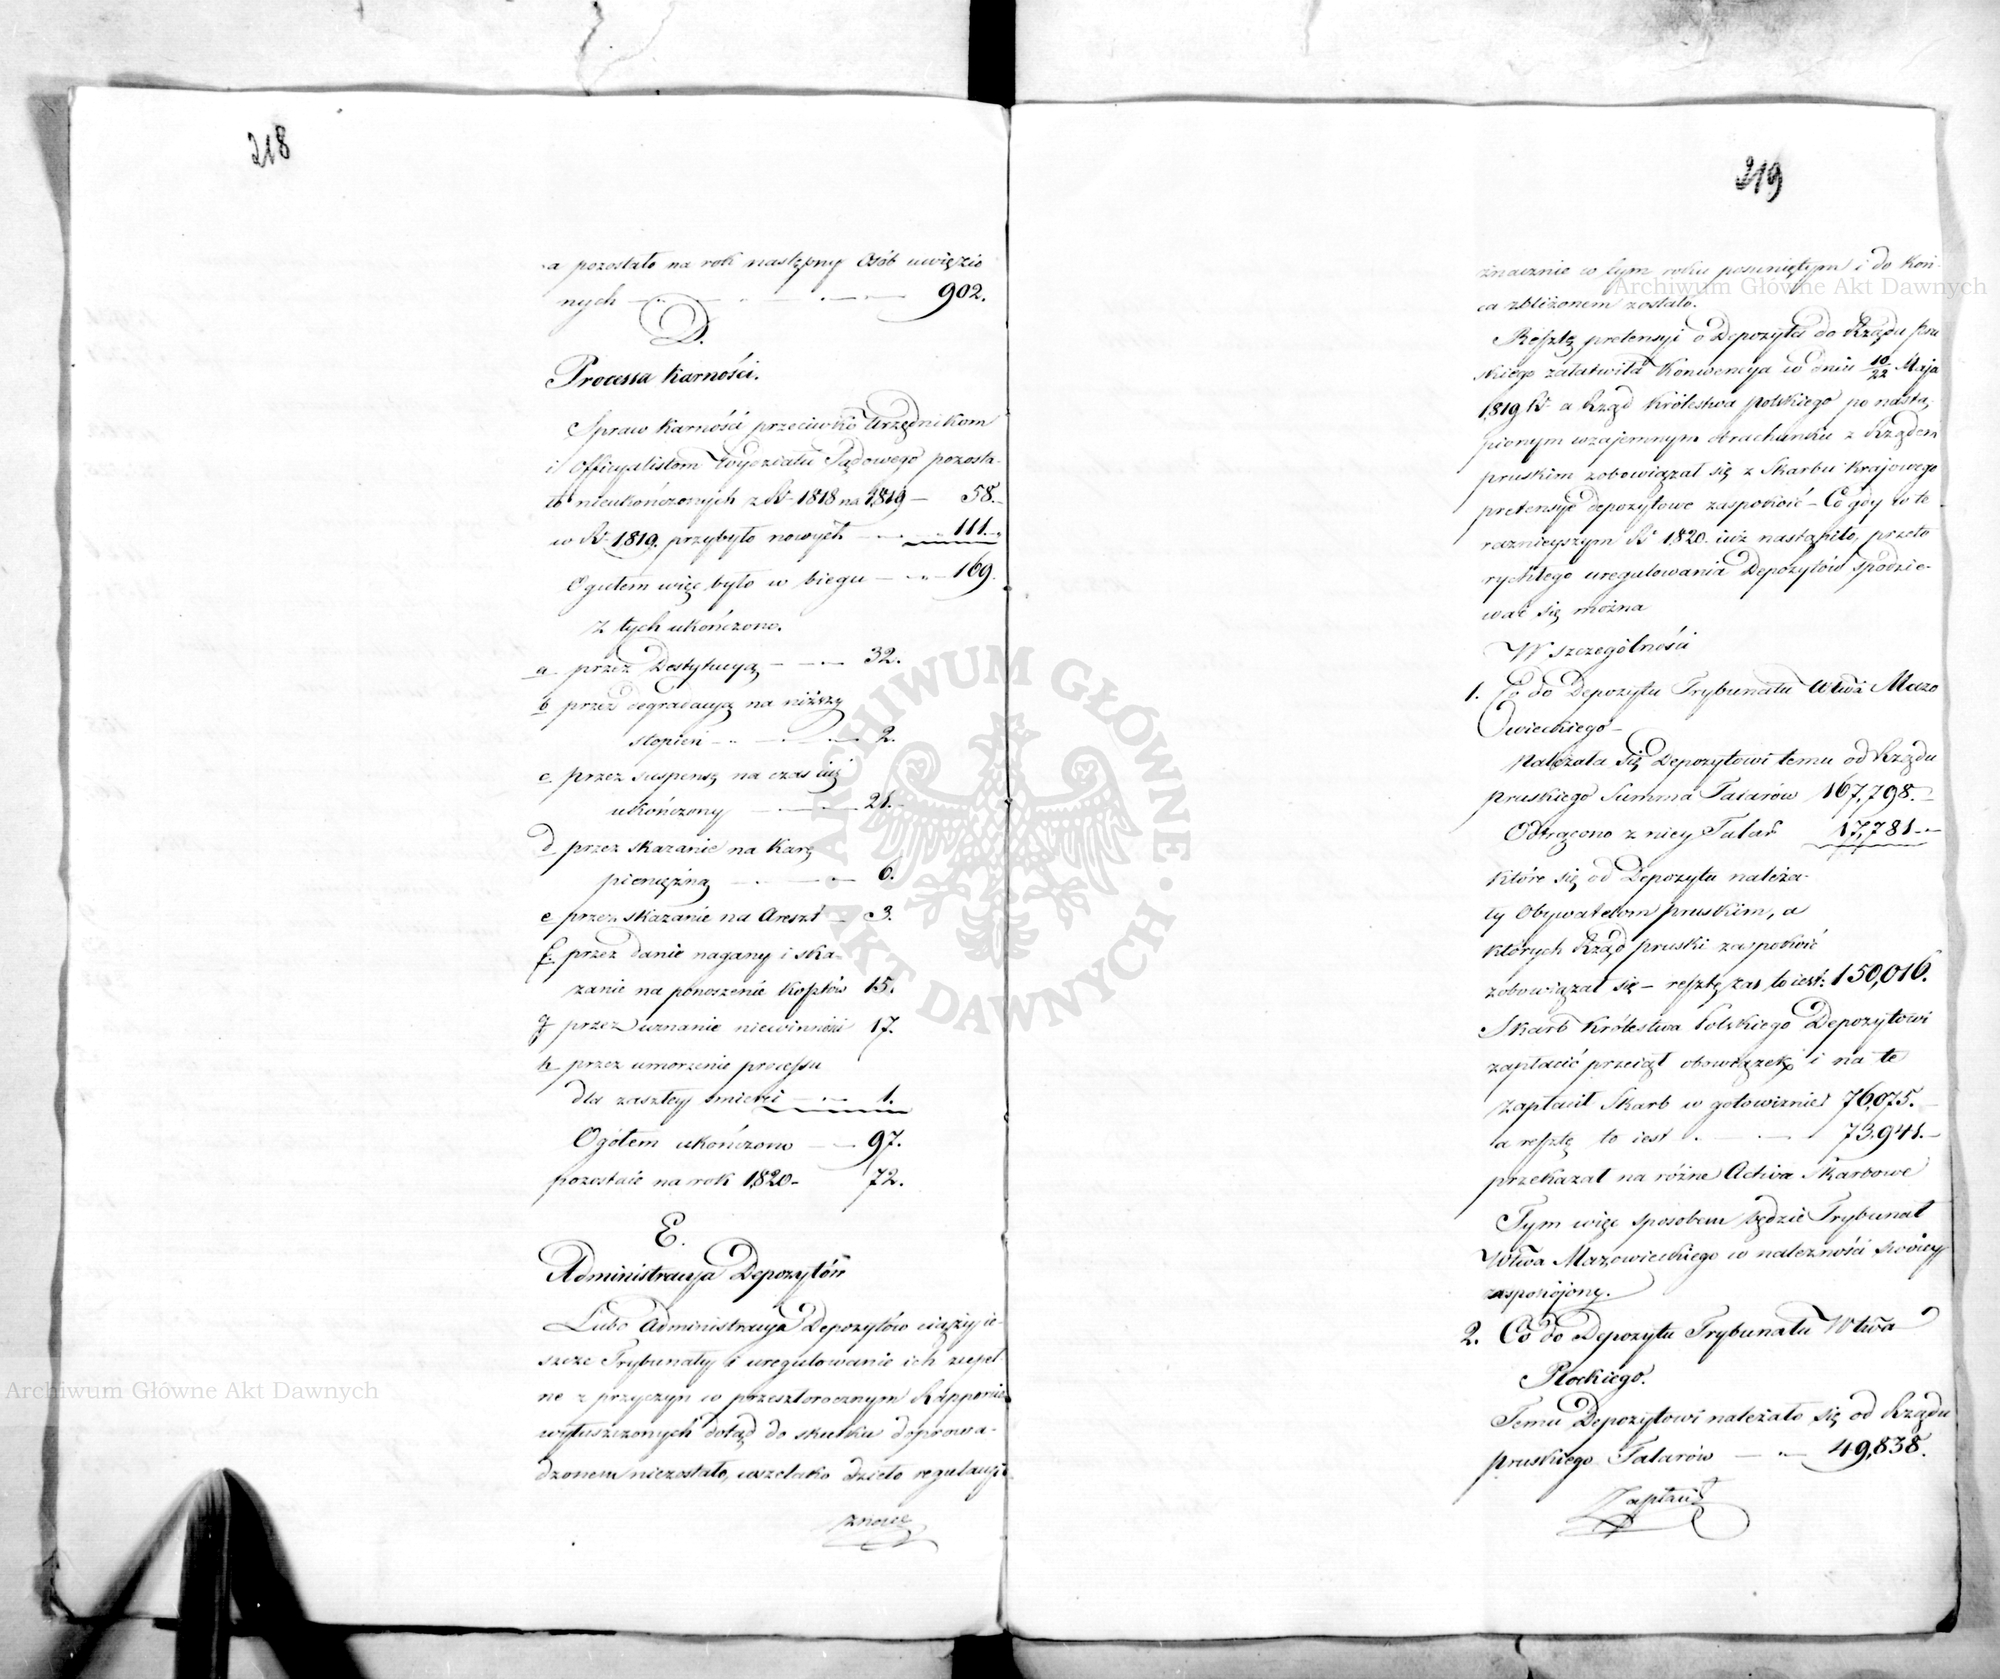 218
a pozostało na rok następny Osób uwięzio
nych 902.
D.
Processa karności.
Spraw karności przeciwko Urzędnikom
i Officyalistom Wydziału Sądowego pozosta-
ło nieukończonych z R. 1818 na 1819 — 58.
w R. 1819. przybyło nowych — 111.
Ogułem więc było w biegu — 169.
Z tych ukończono.
a przez Destytucyą — 32.
b przez degradacyą na niższy
stopień — 2.
c. przez suspensę na czas iuż
ukończony — 21.
d przez skazanie na karę
pieniężną — 6.
e przez skazanie na Areszt — 3.
f. przez danie nagany i ska-
zanie na ponoszenie kosztów 15.
g przez uznanie niewinności 17.
h przez umorzenie processu
dla zaszłey śmierci — 1.
Ogółem ukończono — 97.
pozostaie na rok 1820 — 72.
E.
Administracya Depozytów
Lubo Administracya Depozytów ciąży ie-
szcze Trybunały i uregulowanie ich zupeł-
ne z przyczyn w przeszłorocznym Rapporcie
wyłuszczonych dotąd do skutku doprowa-
dzonem niezostało, wszelako dzieło regulacyi
znacz
219
znacznie w tym roku posuniętym i do koń-
ca zbliżonem zostało.
Resztę pretensyi o Depozyta do Rządu pru
skiego załatwiła Konwencya w dniu 10/22 Maja
1819 R. a Rząd Królestwa polskiego po nastą-
pionym wzajemnym obrachunku z Rządem
pruskim zobowiązał się z Skarbu krajowego
pretensye depozytowe zaspokoić — Co gdy w te
raznieyszym R. 1820. iuż nastąpiło, przeto
rychłego uregulowania Depozytów spodzie-
wać się można
W szczególności
1. Co do Depozytu Trybunału Wtwa Mazo
wieckiego —
Należała się Depozytowi temu od Rządu
pruskiego Summa Talarów 167,798.
Odtrącono z niey Talar 17,781.
które się od Depozytu należa-
ły Obywatelom pruskim, a
których Rząd pruski zaspokoić
zobowiązał się — resztę zas to iest: 150,016.
Skarb Królestwa Polskiego Depozytowi
zapłacić przeiął obowiązek i na te
zapłacił Skarb w gotowiznie 76,075.
a resztę to iest — 73.941.
przekazał na różne Activa Skarbowe
Tym więc sposobem będzie Trybunał
Wtwa Mazowieckiego w należności swoiey
zaspokojony.
2. Co do Depozytu Trybunału Wtwa
Płockiego.
Temu Depozytowi należało się od Rządu
pruskiego Talarów — 49,838.
Zapłacił
Archiwum Główne Akt Dawnych
Archiwum Główne Akt Dawnych
ARCHIWUM GŁÓWNE · AKT DAWNYCH ·